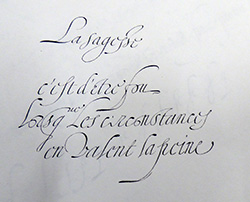 La sagesse
c'est d'être fou
lorsque les circonstances
en valent la peine